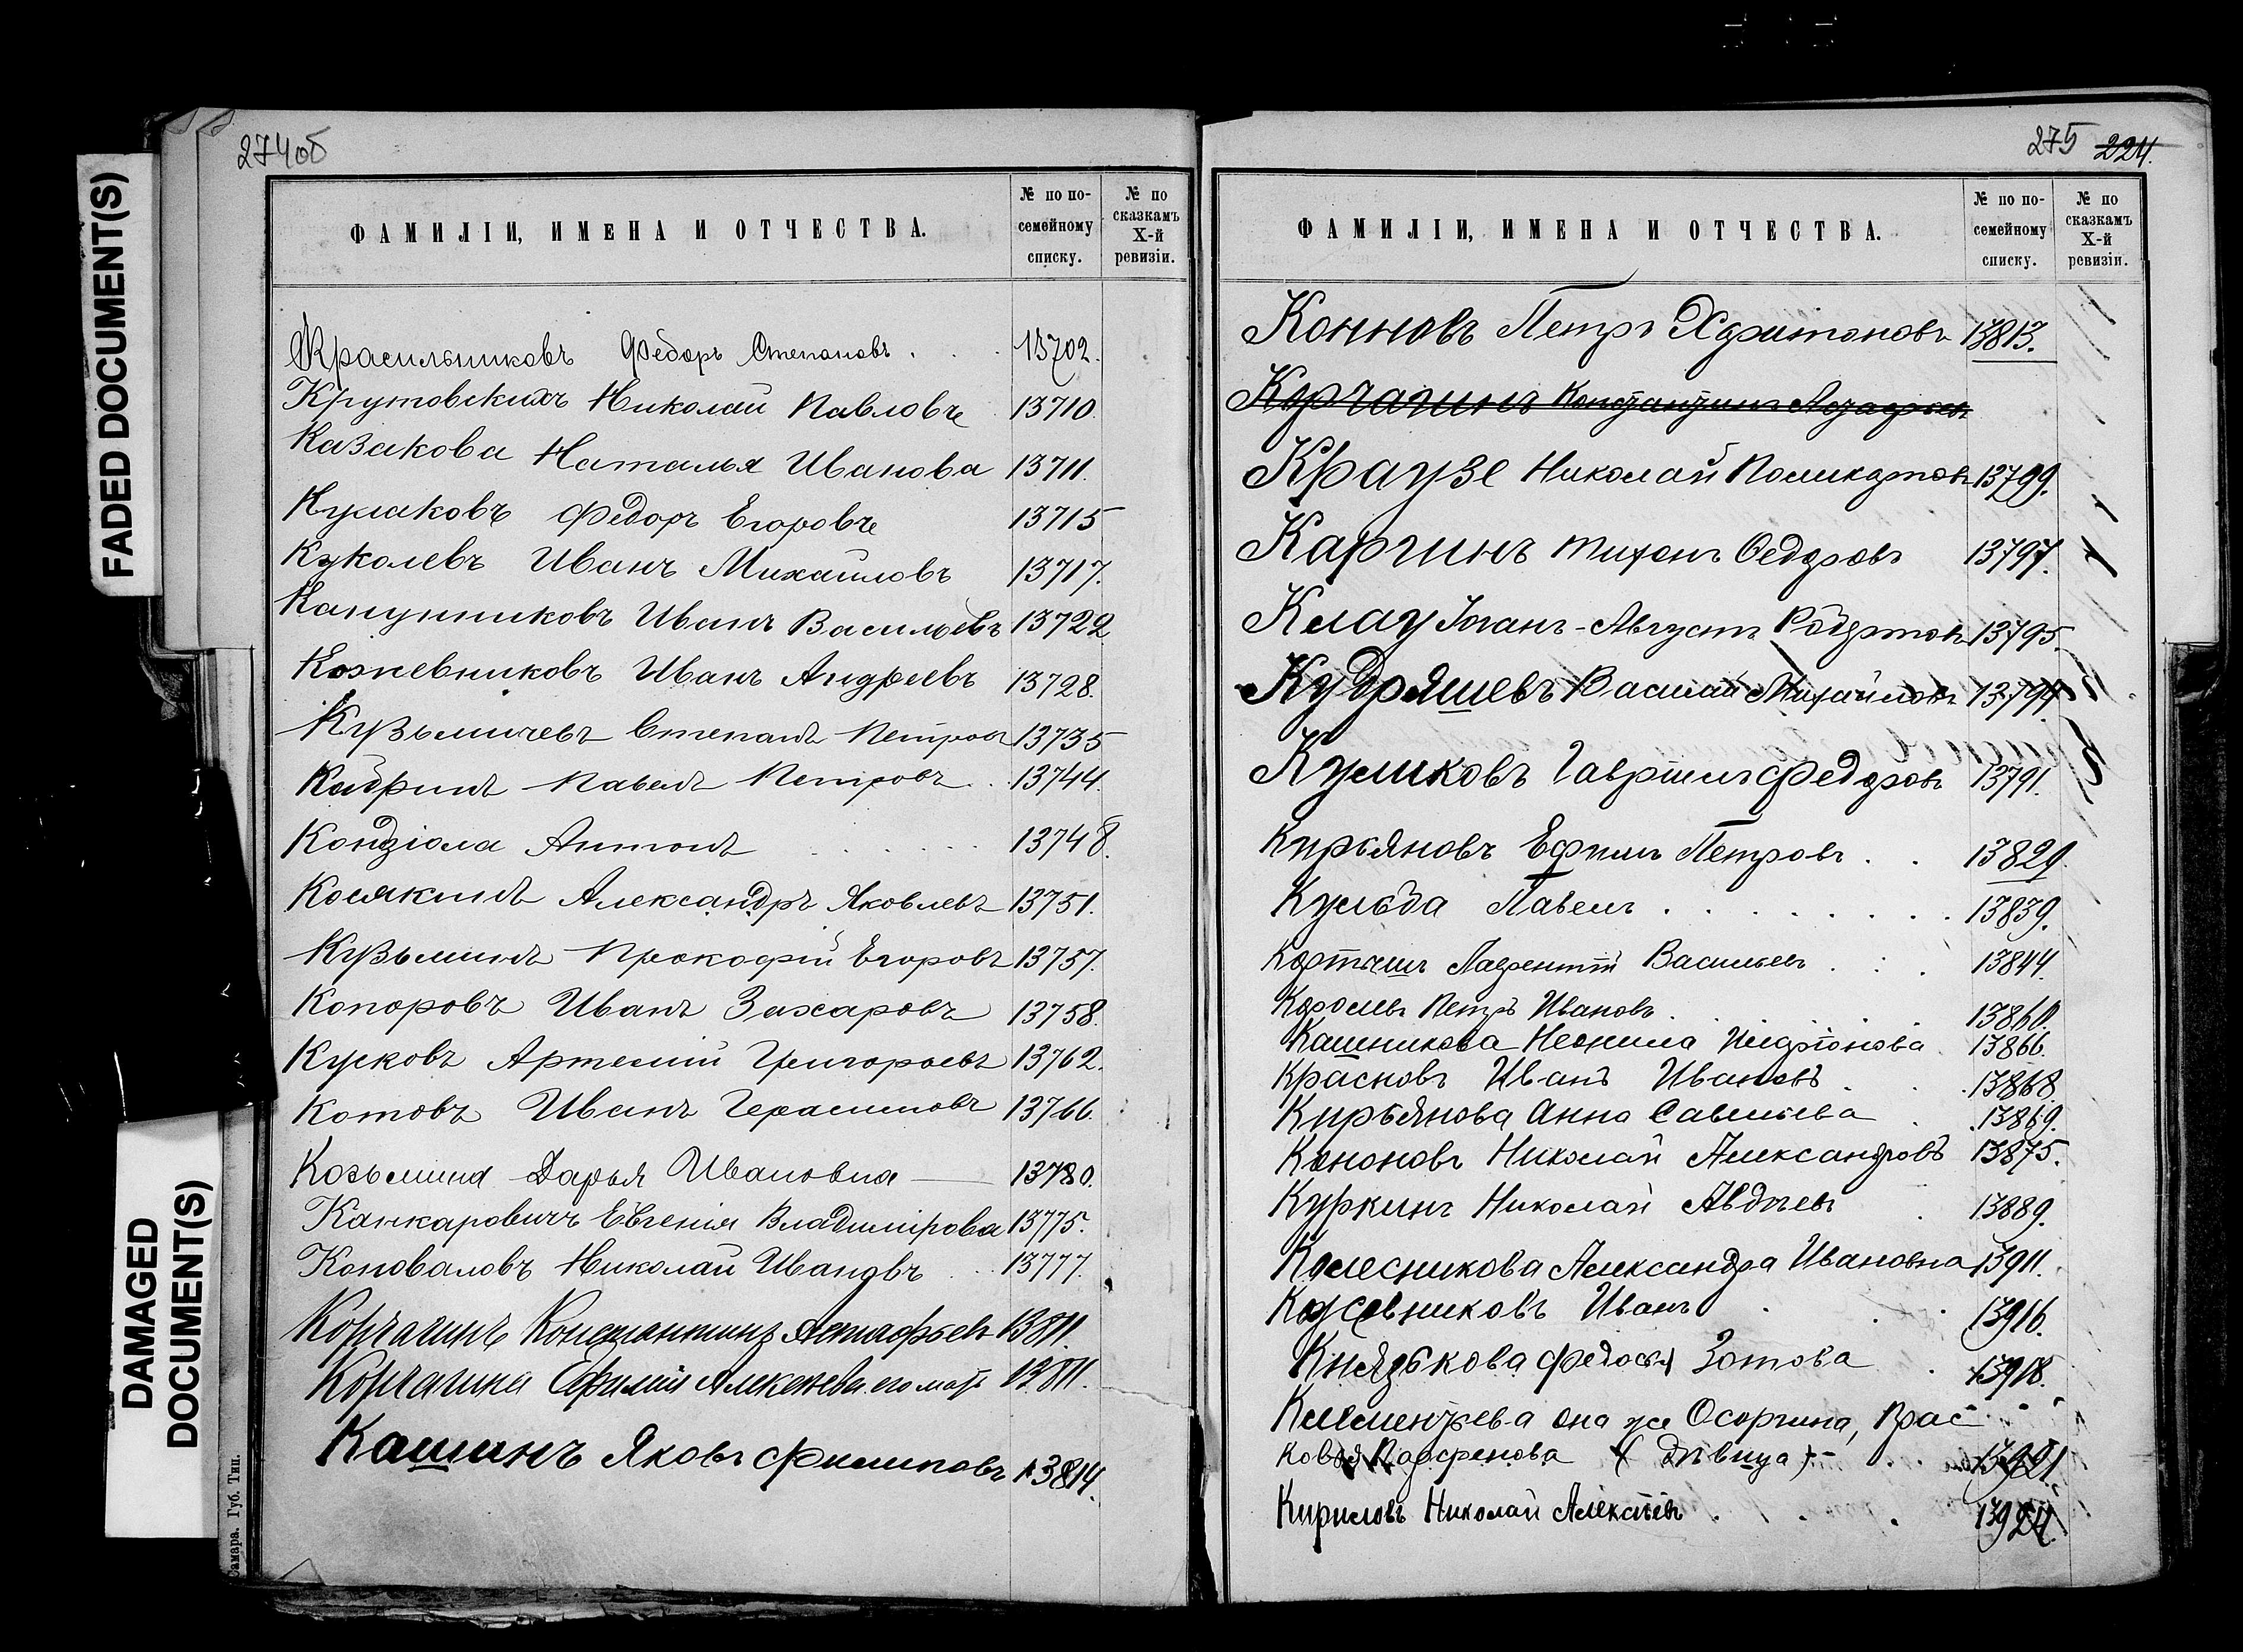 FADED DOCUMENT(S)
DAMAGED
DOCUMENT(S)
Самара. Губ. Тип.
274об
ФАМИЛІИ, ИМЕНА И ОТЧЕСТВА.
№ по по-
семейному
списку.
№ по
сказкамъ
X-й
ревизіи.
Красильниковъ Федоръ Степановъ . . . 13702.
Крутовскихъ Николай Павловъ . 13710.
Казакова Наталья Иванова 13711.
Кулаковъ Федоръ Егоровъ 13715
Куколевъ Иванъ Михайловъ 13717.
Канунниковъ Иванъ Васильевъ 13722
Кожевниковъ Иванъ Андреевъ 13728.
Кузьмичевъ Степанъ Петровъ 13735
Кадринъ Павелъ Петровъ . . 13744.
Кондзіола Антонъ . . . . . . 13748.
Косякинъ Александръ Яковлевъ 13751.
Кузьминъ Прокофій Егоровъ 13757.
Копоровъ Иванъ Захаровъ 13758.
Кусковъ Артемій Григорьевъ 13762.
Котовъ Иванъ Герасимовъ 13766.
Козьмина Дарья Ивановна — 13780.
Канкаровичъ Евгенія Владимірова 13775.
Коноваловъ Николай Ивановъ . . 13777.
Корчагинъ Константинъ Астафьевъ 13811.
Корчагина Ефимія Алексеева его мать 13811.
Кашинъ Яковъ Филиповъ 13814.
275 224.
ФАМИЛІИ, ИМЕНА И ОТЧЕСТВА.
№ по по-
семейному
списку.
№ по
сказкамъ
X-й
ревизіи.
Конновъ Петръ Харитоновъ 13813.
Корчагинъ Константинъ Астафьевъ
Краузе Николай Поликарповъ 13799.
Каргинъ Тихонъ Федоровъ 13797.
Клау Іоганъ-Августъ Робертовъ 13795.
Кудряшевъ Василий Михайловъ 13794
Куликовъ Гавріилъ Федоровъ 13791.
Кирьяновъ Ефимъ Петровъ . . 13829.
Кульда Павелъ . . . . . . . . 13839.
Кортышъ Лаврентій Васильевъ . : . 13844.
Королевъ Петръ Ивановъ . . . . 13860.
Кашникова Неонила Иларіонова . 13866.
Красновъ Иванъ Ивановъ . . 13868.
Кирьянова Анна Савельева . 13869.
Кононовъ Николай Александровъ 13875.
Куркинъ Николай Авдѣевъ . 13889.
Колесникова Александра Ивановна 13911.
Кожевниковъ Иванъ . . . 13916.
Князькова Федосья Зотова . 13918.
Клементьева она же Осоргина, Прас-
ковья Парфенова (дѣвица) - . . 13921
Кириловъ Николай Алексѣевъ . . . 13924.